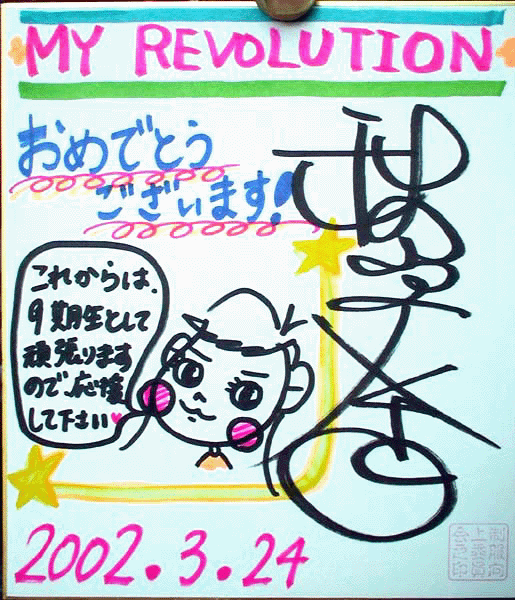 MY REVOLUTION
おめでとう
ございます!
これからは、
9期生として
頑張ります
ので応援
して下さい♥
2002.3.24